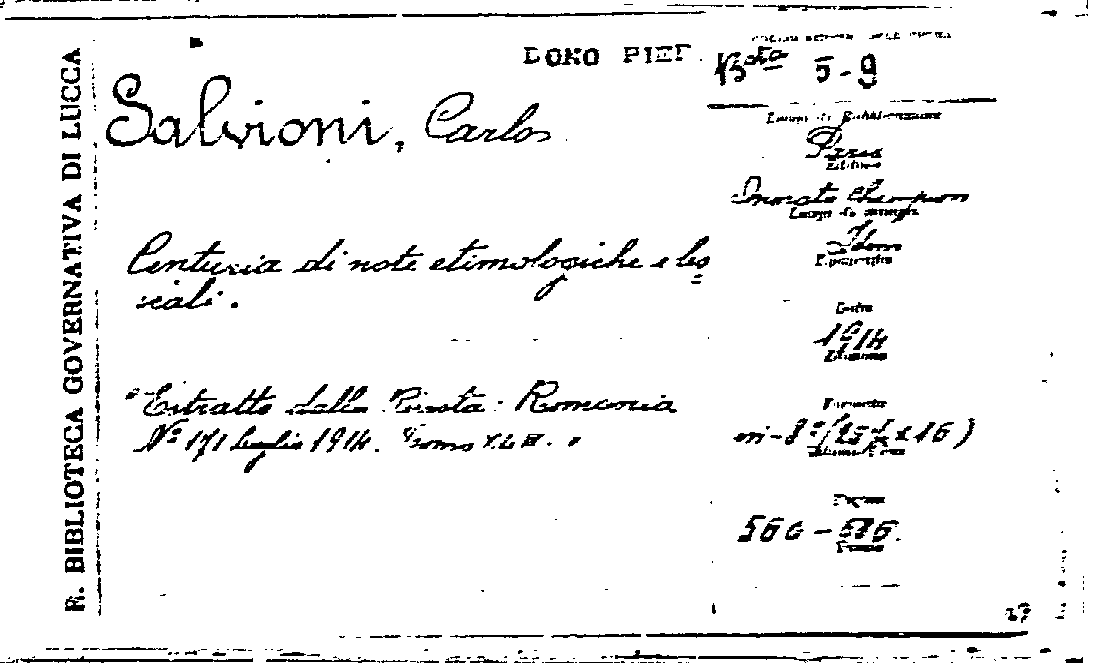 R. BIBLIOTECA GOVERNATIVA DI LUCCA
DONO PIEI
Bsta 5-9
Salvioni, Carlos
Centuria di note etimologiche e les
sicali.
"Estratto dalla Rivista: Romania
Nº 171 luglio 1914. Tomo XLIII. "
Luogo di Pubblicazione
Editore
Champion
Luogo di stampa
Idem
Tipografia
Data
1914
Edizione
Formato
in-8º (25 x 16)
Pagine
566-
27